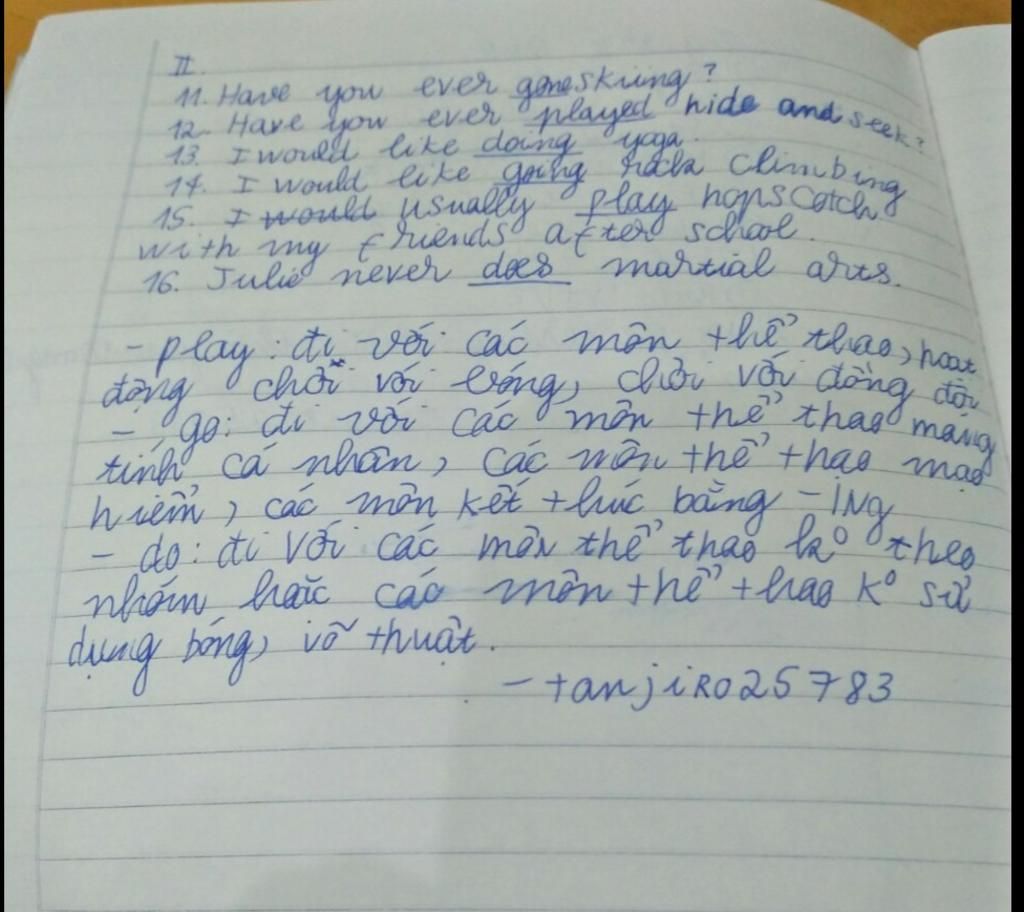 II.
11. Have you ever gone skiing?
12. Have you ever played hide and seek?
13. I would like doing yoga.
14. I would like going rock climbing
15. I would usually play hopscotch
with my friends after school.
16. Julie never does martial arts.
- play: đi với các môn thể thao, hoạt
động chơi với bóng, chơi với đồng đội
- go: đi với các môn thể thao mang
tính cá nhân, các môn thể thao mạo
hiểm, các môn kết thúc bằng -ing
- do: đi với các môn thể thao k° theo
nhóm hoặc các môn thể thao k° sử
dụng bóng, võ thuật.
- tanjiro25783